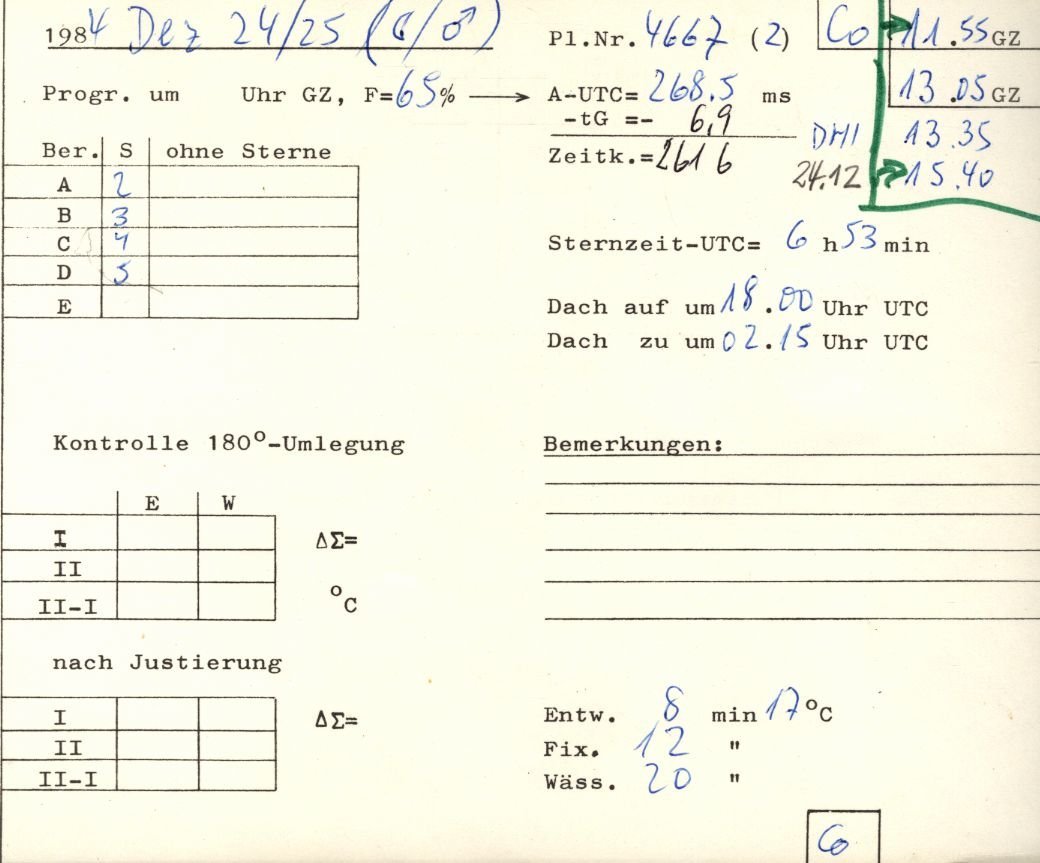 1984 Dez 24/25 (☾/♂)
Pl.Nr. 4667 (2)
Co 11.55 GZ
13.05 GZ
DHI 13.35
24.12 15.40
Progr. um Uhr GZ, F=65% A-UTC= 268.5 ms
-tG =- 6,9
Zeitk.= 261 6
Ber. S ohne Sterne
A 2
B 3
C 4
D 5
E
Sternzeit-UTC= 6 h 53 min
Dach auf um 18.00 Uhr UTC
Dach zu um 02.15 Uhr UTC
Kontrolle 180°-Umlegung
E W
I ΔΣ=
II
II-I °C
nach Justierung
I ΔΣ=
II
II-I
Bemerkungen:
Entw. 8 min 17°C
Fix. 12 "
Wäss. 20 "
Co